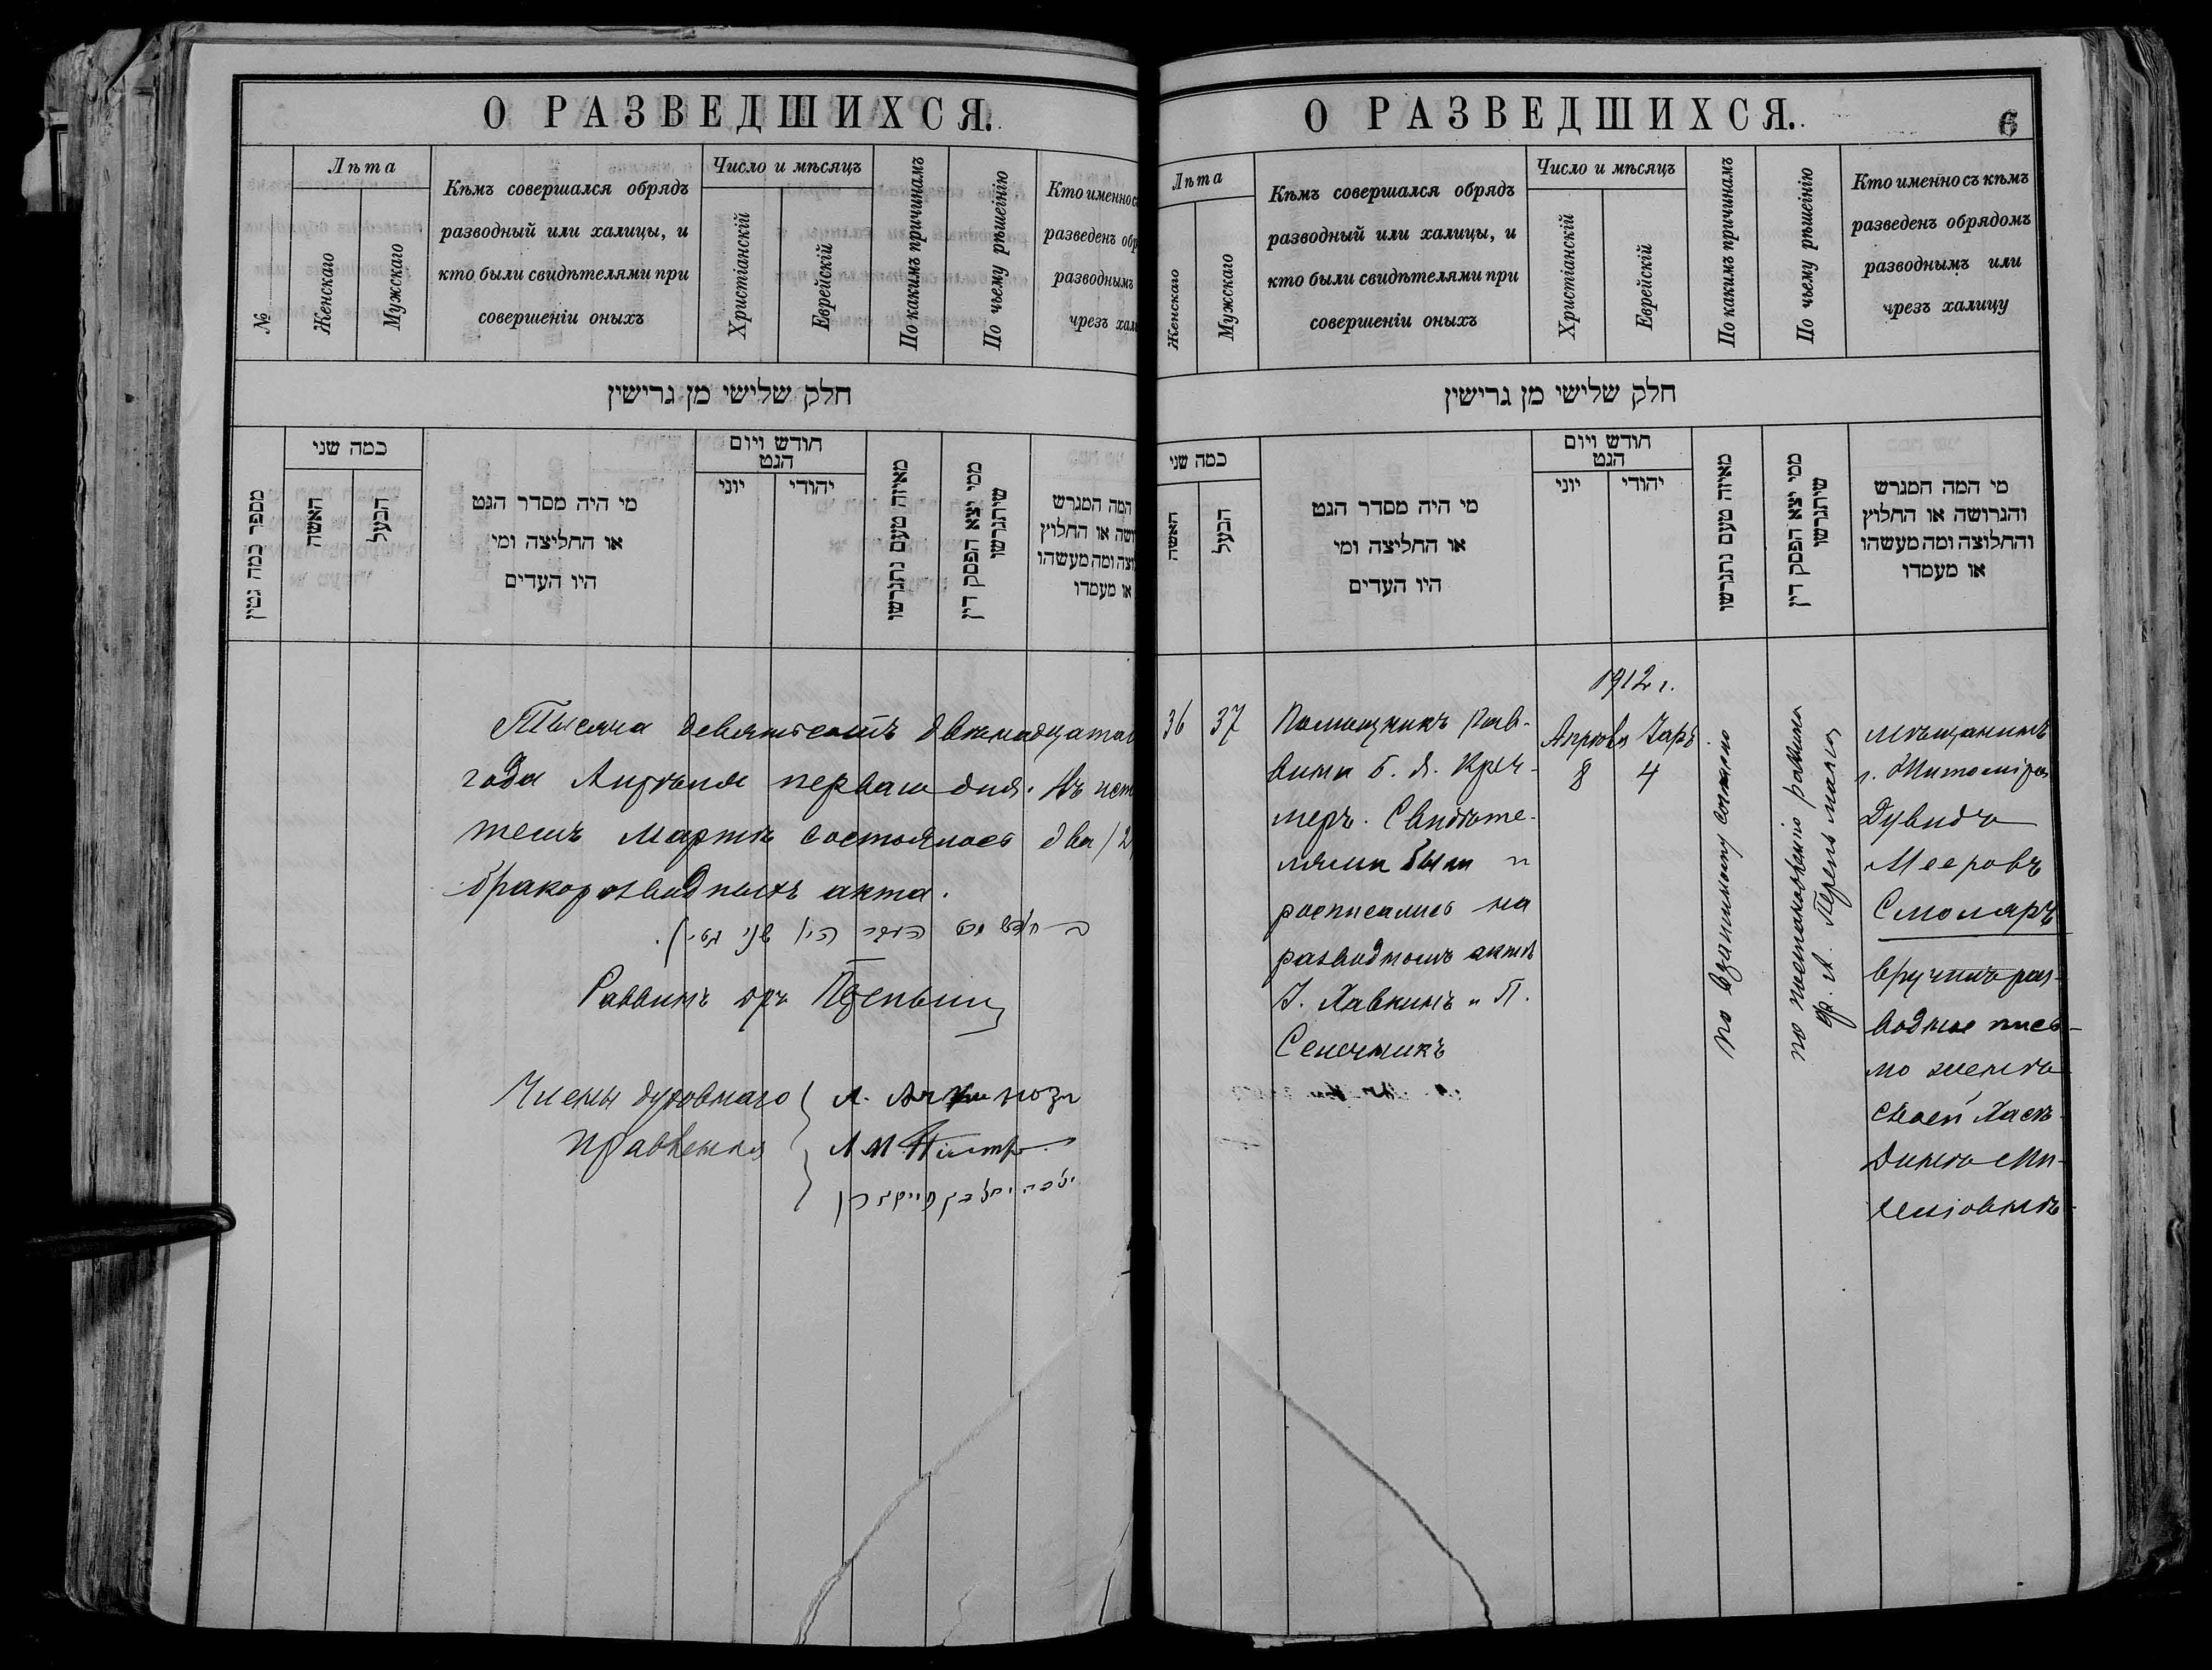 О РАЗВЕДШИХСЯ.
№
Лѣта
Женскаго
Мужскаго
Кѣмъ совершался обрядъ
разводный или халицы, и
кто были свидѣтелями при
совершеніи оныхъ
Число и мѣсяцъ
Христіанскій
Еврейскій
По какимъ причинамъ
По чьему рѣшенію
Кто именно съ
разведенъ обр
разводнымъ
чрезъ хали
חלק שלישי מן גרישין
מספר כמה גטין
כמה שני
האשה
הבעל
מי היה מסדר הגט
או החליצה ומי
היו העדים
חודש ויום
הגט
יוני
יהודי
מאיזה טעם נתגרשו
ממי יצא הפסק דין
שיתגרשו
המה המגרש
ושה או החלוץ
וצה ומה מעשהו
או מעמדו
Тысяча девятьсотъ двѣнадцатаго
года Апрѣля перваго дня. Въ ист
темъ Мартѣ состоялось два /2/
бракоразводныхъ акта.
Раввинъ
Члены духовнаго
правленія
О РАЗВЕДШИХСЯ.
6
Лѣта
Женскаго
Мужскаго
Кѣмъ совершался обрядъ
разводный или халицы, и
кто были свидѣтелями при
совершеніи оныхъ
Число и мѣсяцъ
Христіанскій
Еврейскій
По какимъ причинамъ
По чьему рѣшенію
Кто именно съ кѣмъ
разведенъ обрядомъ
разводнымъ или
чрезъ халицу
חלק שלישי מן גרישין
כמה שני
האשה
הבעל
מי היה מסדר הגט
או החליצה ומי
היו העדים
חודש ויום
הגט
יוני
יהודי
מאיזה טעם נתגרשו
ממי יצא הפסק דין
שיתגרשו
מי המה המגרש
והגרושה או החלוץ
והחלוצה ומה מעשהו
או מעמדו
36
37
Помощникъ Рав-
вина Б. Я. Креч-
меръ. Свидѣте-
лями были и
росписались на
разводномъ актѣ
І. Хавкинъ и П.
1912 г.
Апрѣля
8
Іаръ
4
по взаимному согласію
по постановленію раввина
Перельмана
мѣщанинъ
г. Житоміра
Дувидъ
Мееровъ
Смоляръ
вручилъ раз-
водное пись-
мо женѣ
своей Хаѣ-